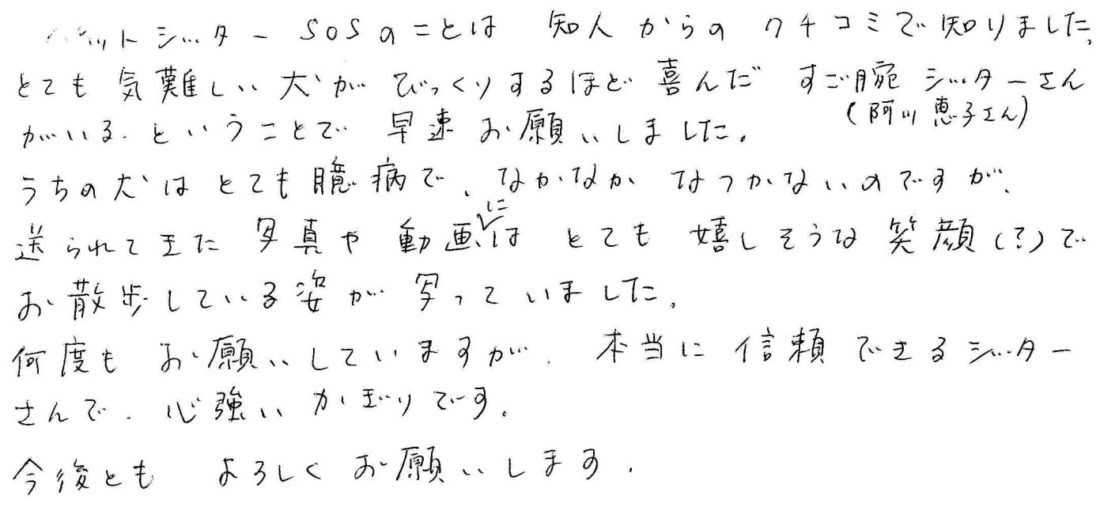 ペットシッターSOSのことは 知人からのクチコミで知りました。
とても気難しい犬がびっくりするほど喜んだ すご腕シッターさん
(阿川恵子さん)
がいる.ということで 早速お願いしました。
うちの犬はとても臆病で、なかなかなつかないのですが、
送られてきた写真や動画には とても嬉しそうな笑顔(?)で
お散歩している姿が写っていました。
何度もお願いしていますが、本当に信頼できるシッター
さんで、心強いかぎりです。
今後とも よろしくお願いします.